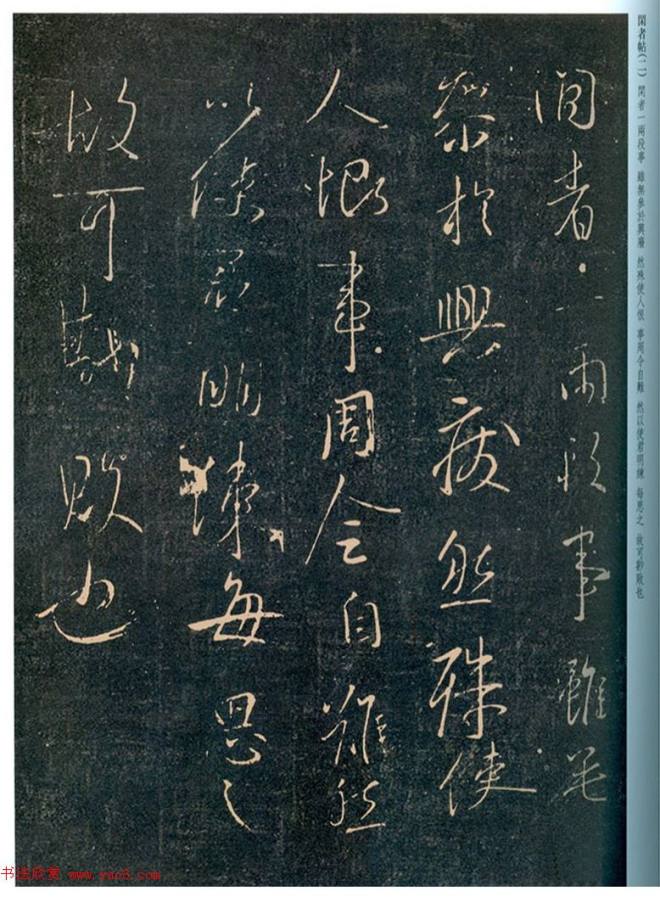 閑者帖(二) 閑者一兩段事 雖無參於興廢 然殊使人恨 事周令自難 然以使君明練 每思之 故可數敗也
閑者一兩段事雖無
參於興廢然殊使
人恨事周令自難然
以使君明練每思之
故可數敗也
书法欣赏 www.yac8.com